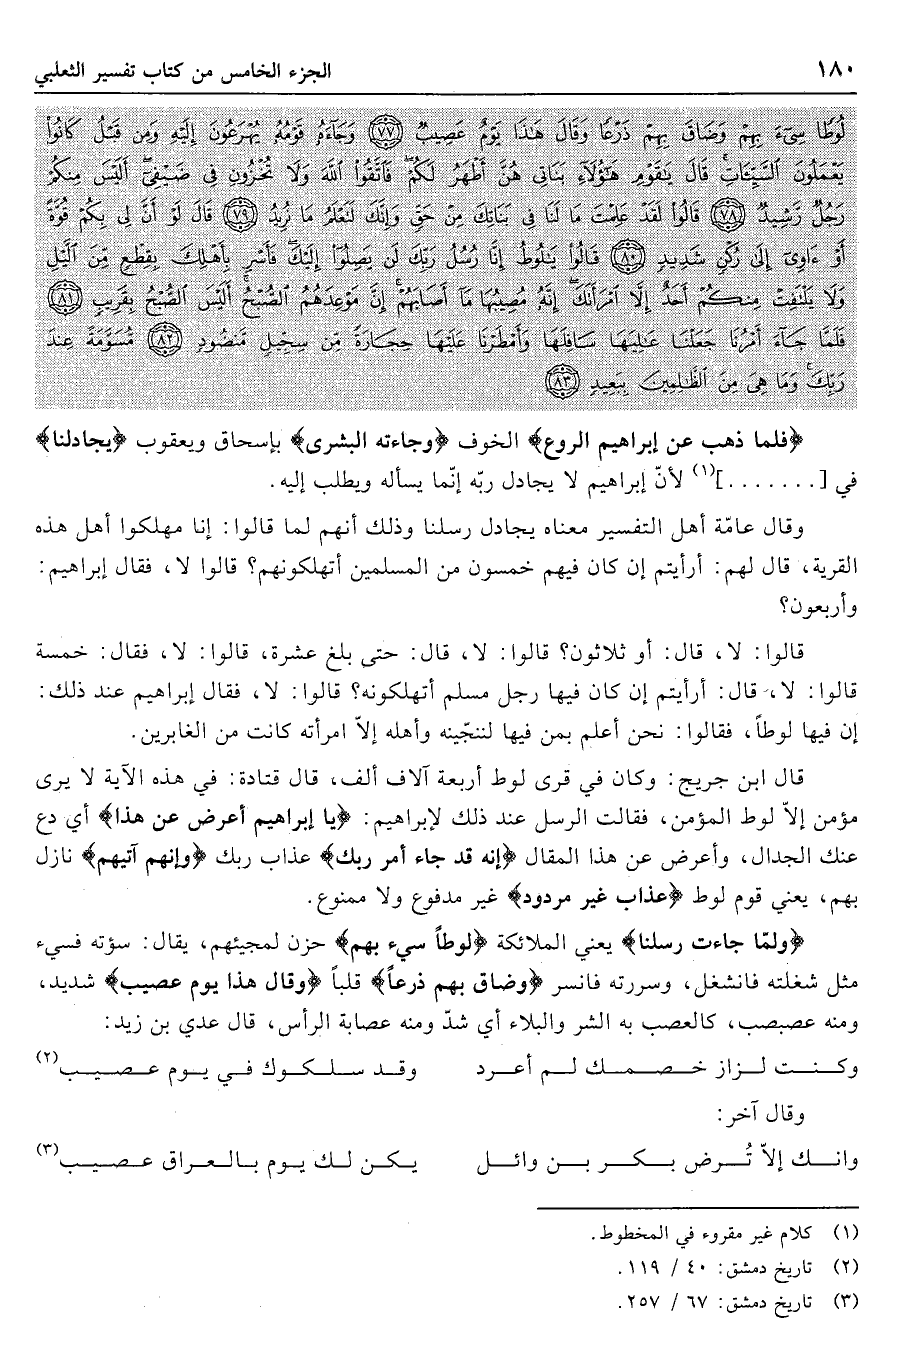 ١٨٠ الجزء الخامس من كتاب تفسير الثعلبي
لُوطًا سِيءَ بِهِمْ وَضَاقَ بِهِمْ ذَرْعًا وَقَالَ هَٰذَا يَوْمٌ عَصِيبٌ ٧٧ وَجَاءَهُ قَوْمُهُ يُهْرَعُونَ إِلَيْهِ وَمِن قَبْلُ كَانُوا
يَعْمَلُونَ السَّيِّئَاتِ قَالَ يَا قَوْمِ هَٰؤُلَاءِ بَنَاتِي هُنَّ أَطْهَرُ لَكُمْ فَاتَّقُوا اللَّهَ وَلَا تُخْزُونِ فِي ضَيْفِي أَلَيْسَ مِنكُمْ
رَجُلٌ رَّشِيدٌ ٧٨ قَالُوا لَقَدْ عَلِمْتَ مَا لَنَا فِي بَنَاتِكَ مِنْ حَقٍّ وَإِنَّكَ لَتَعْلَمُ مَا نُرِيدُ ٧٩ قَالَ لَوْ أَنَّ لِي بِكُمْ قُوَّةً
أَوْ ءَاوِي إِلَىٰ رُكْنٍ شَدِيدٍ ٨٠ قَالُوا يَا لُوطُ إِنَّا رُسُلُ رَبِّكَ لَن يَصِلُوا إِلَيْكَ فَأَسْرِ بِأَهْلِكَ بِقِطْعٍ مِّنَ اللَّيْلِ
وَلَا يَلْتَفِتْ مِنكُمْ أَحَدٌ إِلَّا امْرَأَتَكَ إِنَّهُ مُصِيبُهَا مَا أَصَابَهُمْ إِنَّ مَوْعِدَهُمُ الصُّبْحُ أَلَيْسَ الصُّبْحُ بِقَرِيبٍ ٨١
فَلَمَّا جَاءَ أَمْرُنَا جَعَلْنَا عَالِيَهَا سَافِلَهَا وَأَمْطَرْنَا عَلَيْهَا حِجَارَةً مِّن سِجِّيلٍ مَّنضُودٍ ٨٢ مُّسَوَّمَةً عِندَ
رَبِّكَ وَمَا هِيَ مِنَ الظَّالِمِينَ بِبَعِيدٍ ٨٣
﴿فلما ذهب عن إبراهيم الروع﴾ الخوف ﴿وجاءته البشرى﴾ بإسحاق ويعقوب ﴿يجادلنا﴾
في [. . . . . . .](١) لأنّ إبراهيم لا يجادل ربّه إنّما يسأله ويطلب إليه.
وقال عامّة أهل التفسير معناه يجادل رسلنا وذلك أنهم لما قالوا: إنا مهلكوا أهل هذه
القرية، قال لهم: أرأيتم إن كان فيهم خمسون من المسلمين أتهلكونهم؟ قالوا لا، فقال إبراهيم:
وأربعون؟
قالوا: لا، قال: أو ثلاثون؟ قالوا: لا، قال: حتى بلغ عشرة، قالوا: لا، فقال: خمسة
قالوا: لا، قال: أرأيتم إن كان فيها رجل مسلم أتهلكونه؟ قالوا: لا، فقال إبراهيم عند ذلك:
إن فيها لوطاً، فقالوا: نحن أعلم بمن فيها لننجّينه وأهله إلاّ امرأته كانت من الغابرين.
قال ابن جريج: وكان في قرى لوط أربعة آلاف ألف، قال قتادة: في هذه الآية لا يرى
مؤمن إلاّ لوط المؤمن، فقالت الرسل عند ذلك لإبراهيم: ﴿يا إبراهيم أعرض عن هذا﴾ أي دع
عنك الجدال، وأعرض عن هذا المقال ﴿إنه قد جاء أمر ربك﴾ عذاب ربك ﴿وإنهم آتيهم﴾ نازل
بهم، يعني قوم لوط ﴿عذاب غير مردود﴾ غير مدفوع ولا ممنوع.
﴿ولمّا جاءت رسلنا﴾ يعني الملائكة ﴿لوطاً سيء بهم﴾ حزن لمجيئهم، يقال: سؤته فسيء
مثل شغلته فانشغل، وسررته فانسر ﴿وضاق بهم ذرعاً﴾ قلباً ﴿وقال هذا يوم عصيب﴾ شديد،
ومنه عصبصب، كالعصب به الشر والبلاء أي شدّ ومنه عصابة الرأس، قال عدي بن زيد:
وكنت لزاز خصمك لم أعرد وقد سلكوك في يوم عصيب(٢)
وقال آخر:
وانك إلاّ تُرض بكر بن وائل يكن لك يوم بالعراق عصيب(٣)
(١) كلام غير مقروء في المخطوط.
(٢) تاريخ دمشق: ٤٠ / ١١٩.
(٣) تاريخ دمشق: ٦٧ / ٢٥٧.